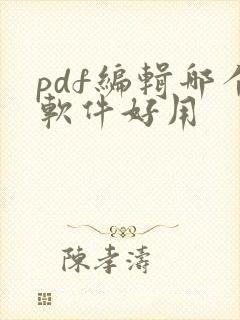 pdf編輯哪个
軟件好用
陳孝濤